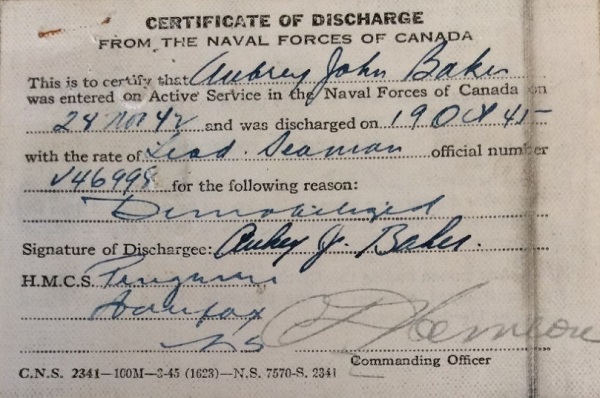 CERTIFICATE OF DISCHARGE
FROM THE NAVAL FORCES OF CANADA
This is to certify that Aubrey John Baker
was entered on Active Service in the Naval Forces of Canada on
24 Nov 42 and was discharged on 19 Oct 45
with the rate of Lead. Seaman official number
V46998 for the following reason:
Demobilized
Signature of Dischargee: Aubrey J. Baker.
H.M.C.S.
Halifax
NS
Commanding Officer
C.N.S. 2341—100M—3-45 (1623)—N.S. 7570-S. 2341